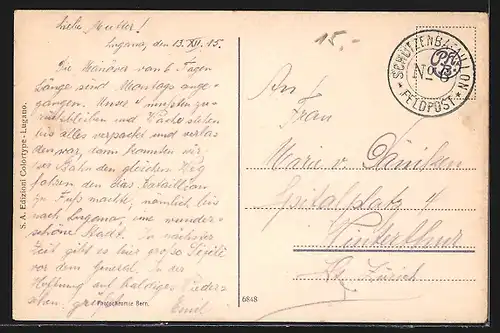 Liebe Mutter!
Lugano, den 13. XII. 15.
Die Manöver von 6 Tagen
Länge sind Montags ange-
gangen. Unser 4 mussten zu-
rückbleiben und Wache stehen
bis alles verpackt und verlas
den war, dann konnten wir
per Bahn den gleichen Weg
fahren den das Bataillon
zu Fuß machte, nämlich bis
nach Lugano, eine wunder-
schöne Stadt. In nächster
Zeit gibt es hier große
vor dem General. In der
Hoffnung auf baldiges Wieder-
sehen grüßt
Emil
S. A. Edizioni Colortype - Lugano.
Photochromie Bern.
6848
15.-
SCHÜTZENBATAILLON
No 6
* FELDPOST *
An
Frau
Marie v. Däniken
Spitalplatz 4
Winterthur
Kt. Zürich